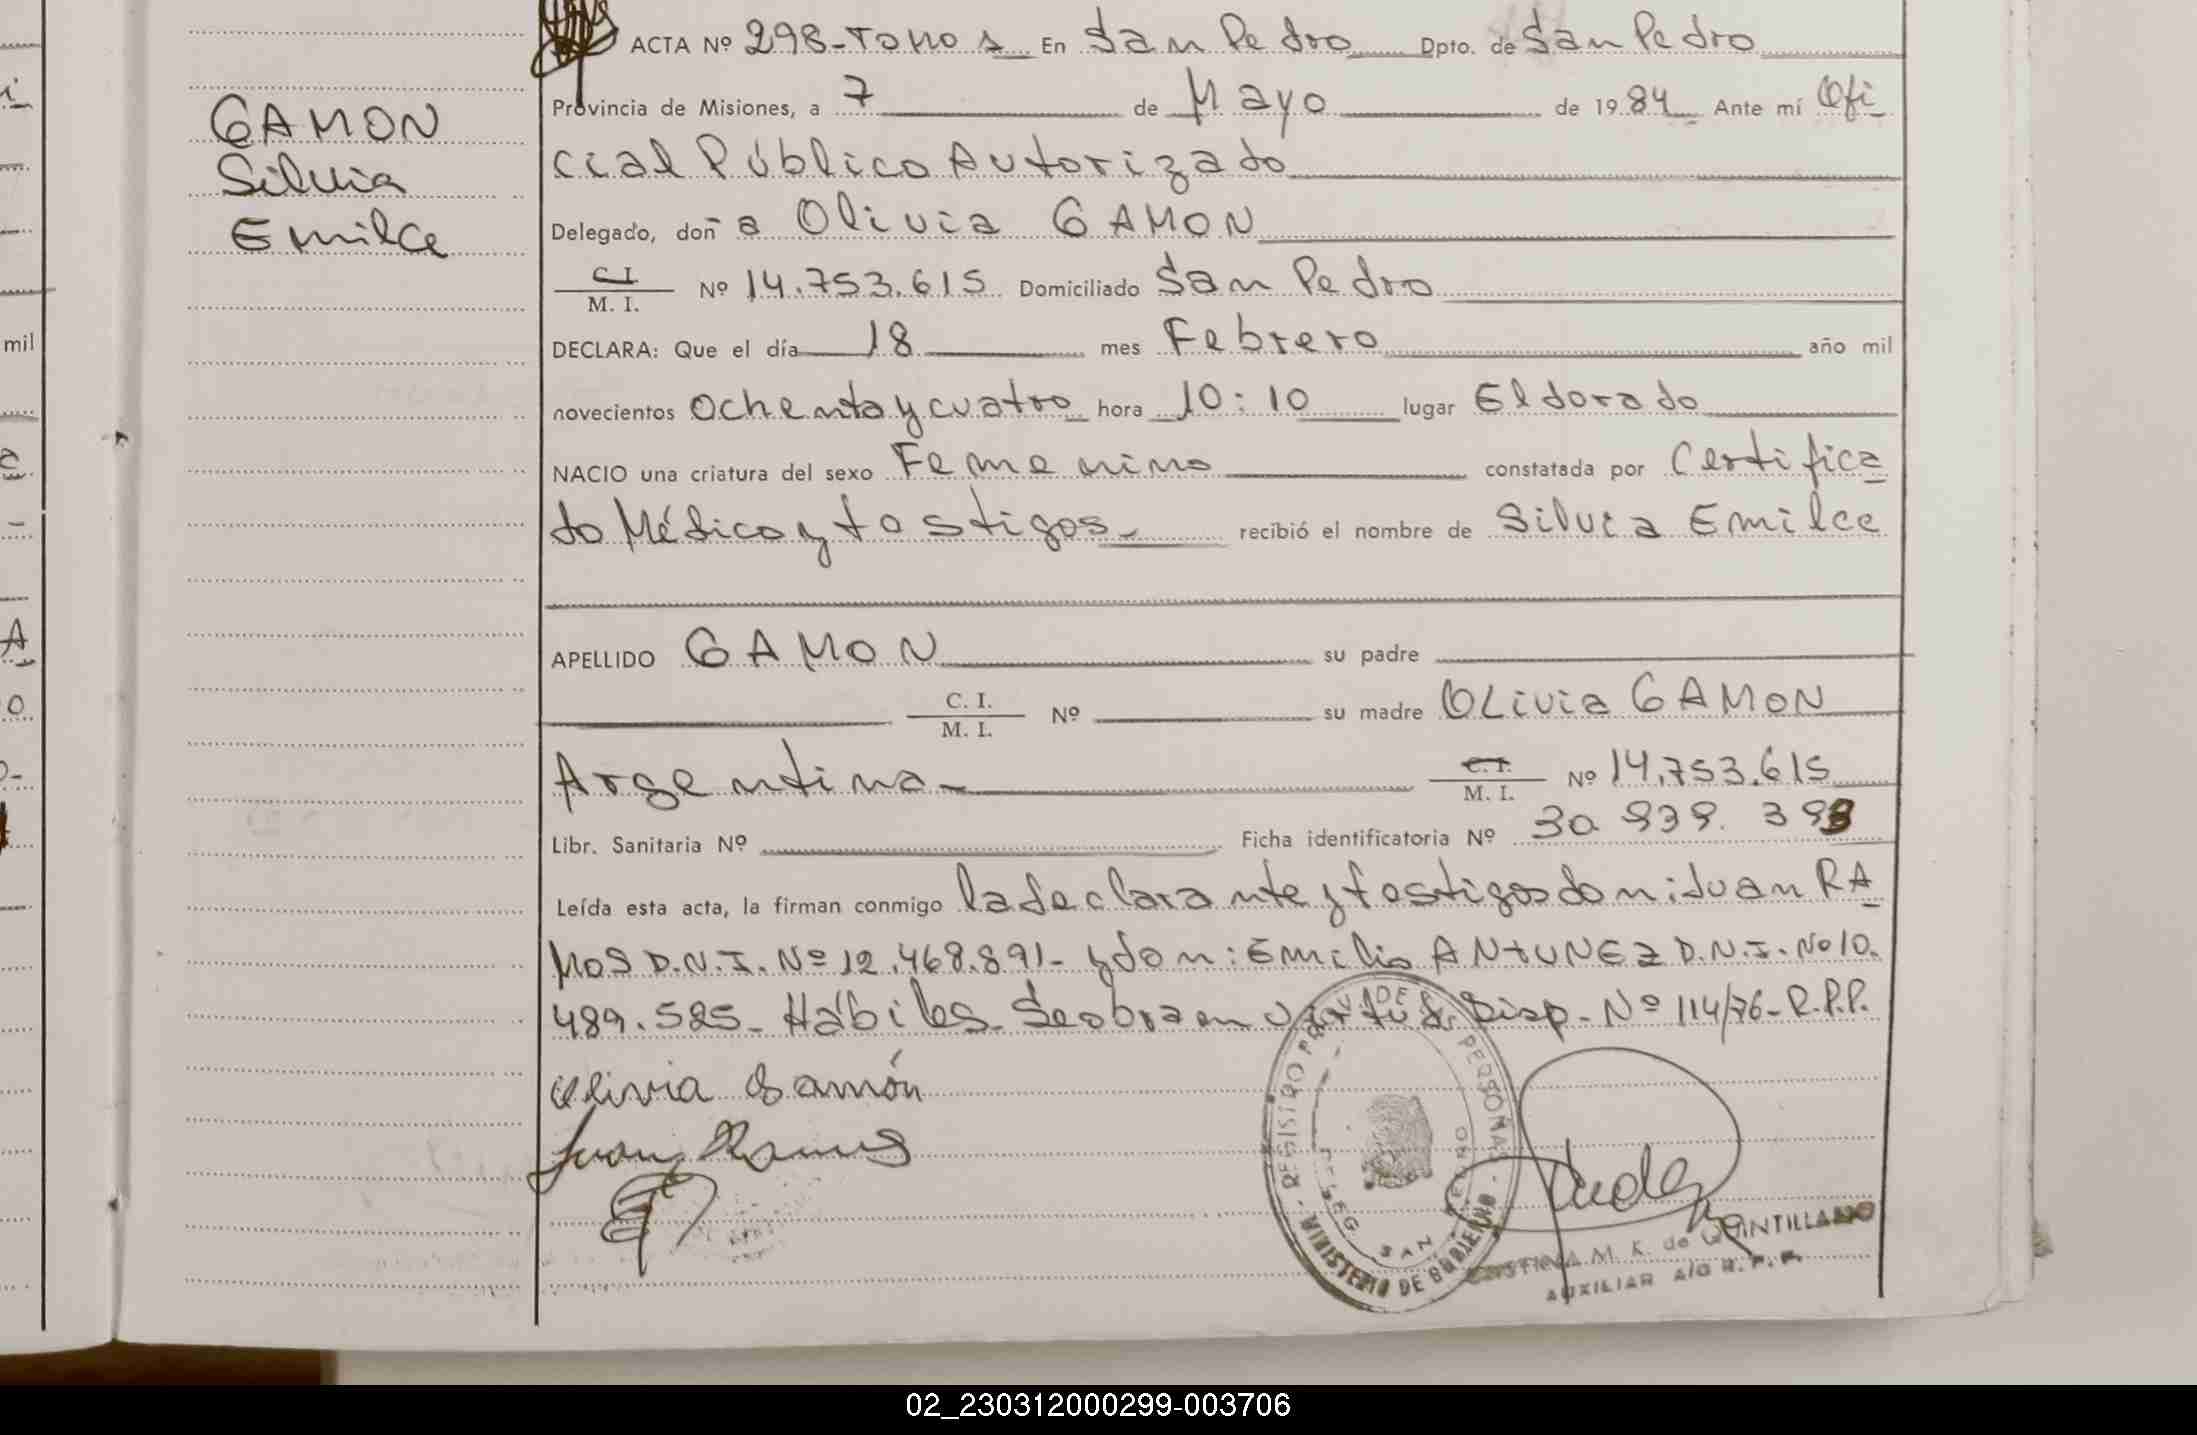 ACTA Nº 298-Tomo 1 En San Pedro Dpto. de San Pedro
Provincia de Misiones, a 7 de Mayo de 1984 Ante mí Ofi
cial Público Autorizado
Delegado, doña Olivia GAMON
C.I. M. I. Nº 14.753.615 Domiciliado San Pedro
DECLARA: Que el día 18 mes Febrero año mil
novecientos Ochenta y cuatro hora 10:10 lugar Eldorado
NACIO una criatura del sexo Femenino constatada por Certifica
do Médico y testigos recibió el nombre de Silvia Emilce
APELLIDO GAMON su padre
C. I. M. I. Nº su madre OLivia GAMON
Argentina- C. I. M. I. Nº 14.753.615
Libr. Sanitaria Nº Ficha identificatoria Nº 30.939.
Leída esta acta, la firman conmigo la declarante y testigos don: Juan RA
MOS D.N.I. Nº 12.468.891- y don: Emilio ANTUNEZ D.N.I. Nº 10.
489.525- Hábiles- Se obra en virtud Disp.- Nº 114/76- R.P.P.
Olivia Gamón
Juan Ramos
REGISTRO PERSONAS
DELEG. SAN PEDRO
MINISTERIO DE GOBIERNO
CRISTINA M. K. de QUINTILLANO
AUXILIAR A/C R.P.P.
GAMON
Silvia
Emilce
mil
02_230312000299-003706